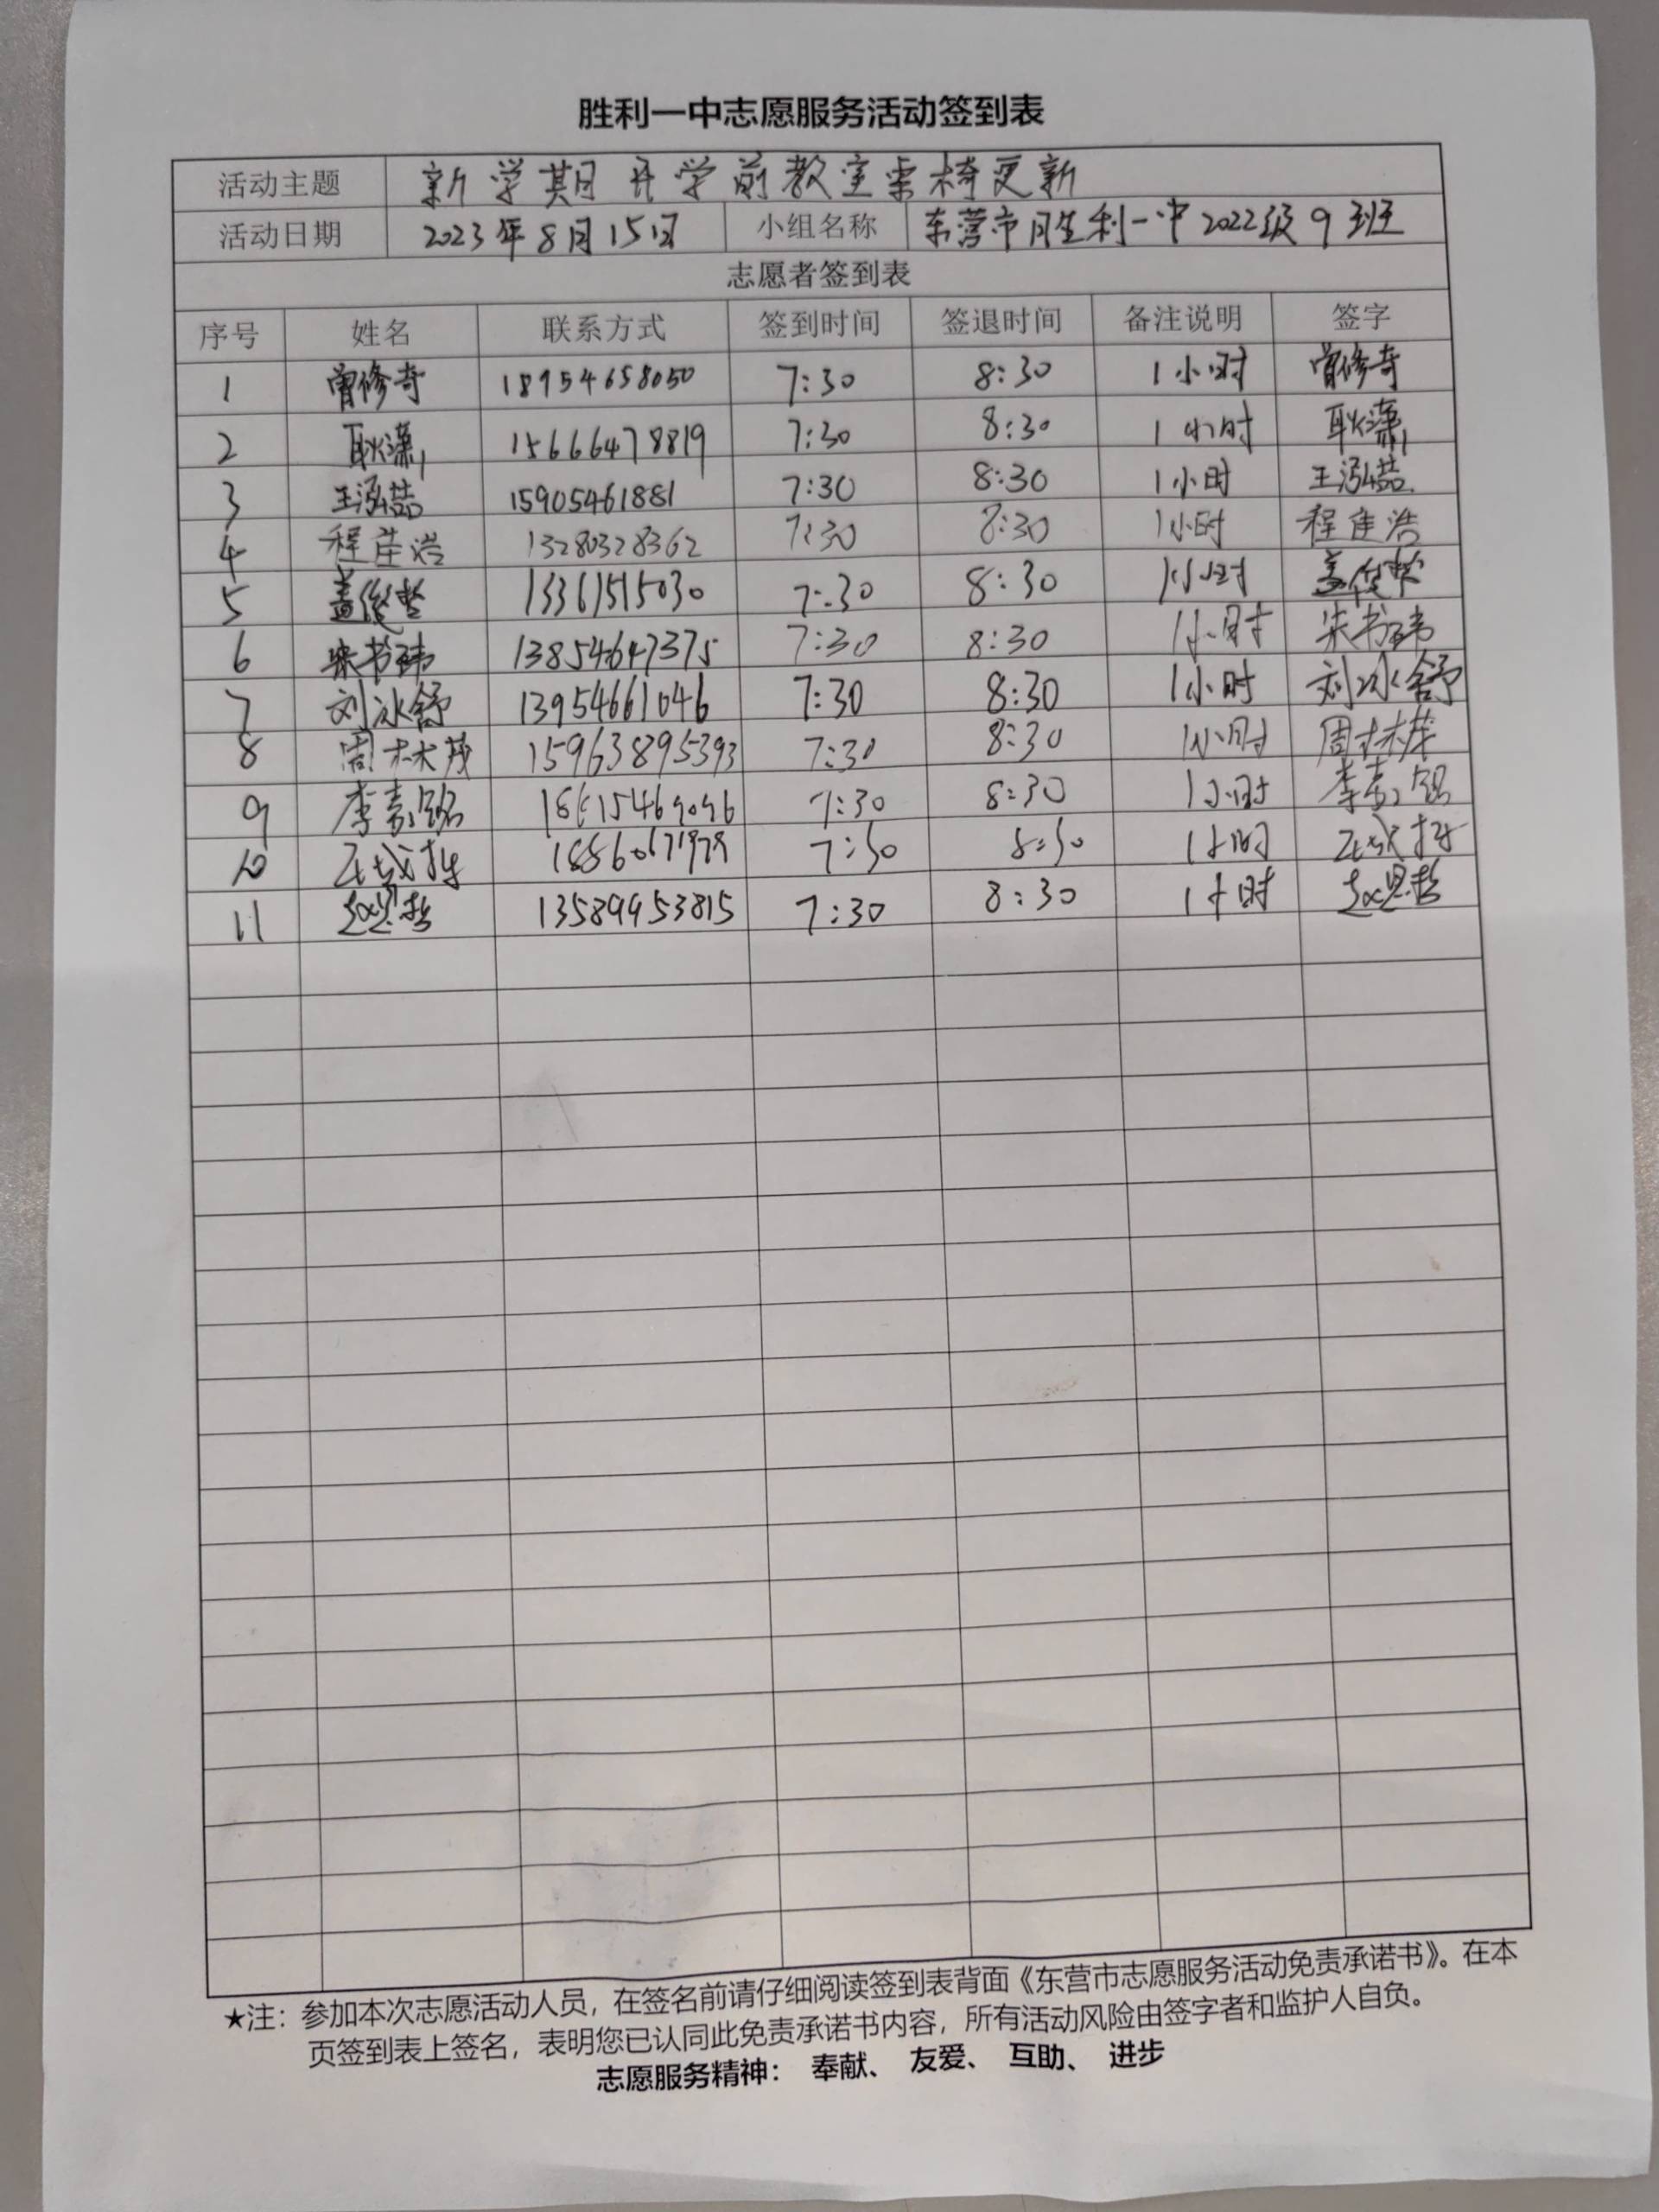 胜利一中志愿服务活动签到表
活动主题 新学期开学前教室桌椅更新
活动日期 2023年8月15日 小组名称 东营市胜利一中2022级9班
志愿者签到表
序号 姓名 联系方式 签到时间 签退时间 备注说明 签字
1 曾修奇 18954658050 7:30 8:30 1小时 曾修奇
2 耿潇 15666478819 7:30 8:30 1小时 耿潇
3 王泓喆 15905461881 7:30 8:30 1小时 王泓喆
4 程浩 13280328362 7:30 8:30 1小时 程浩
5 盖俊哲 13361515030 7:30 8:30 1小时 盖俊哲
6 宋书玮 13854647375 7:30 8:30 1小时 宋书玮
7 刘冰舒 13954661046 7:30 8:30 1小时 刘冰舒
8 周林茂 15963895393 7:30 8:30 1小时 周林茂
9 李嘉铭 18615469096 7:30 8:30 1小时 李嘉铭
10 7:30 8:30 1小时
11 13589953815 7:30 8:30 1小时
★注：参加本次志愿活动人员，在签名前请仔细阅读签到表背面《东营市志愿服务活动免责承诺书》。在本
页签到表上签名，表明您已认同此免责承诺书内容，所有活动风险由签字者和监护人自负。
志愿服务精神： 奉献、 友爱、 互助、 进步